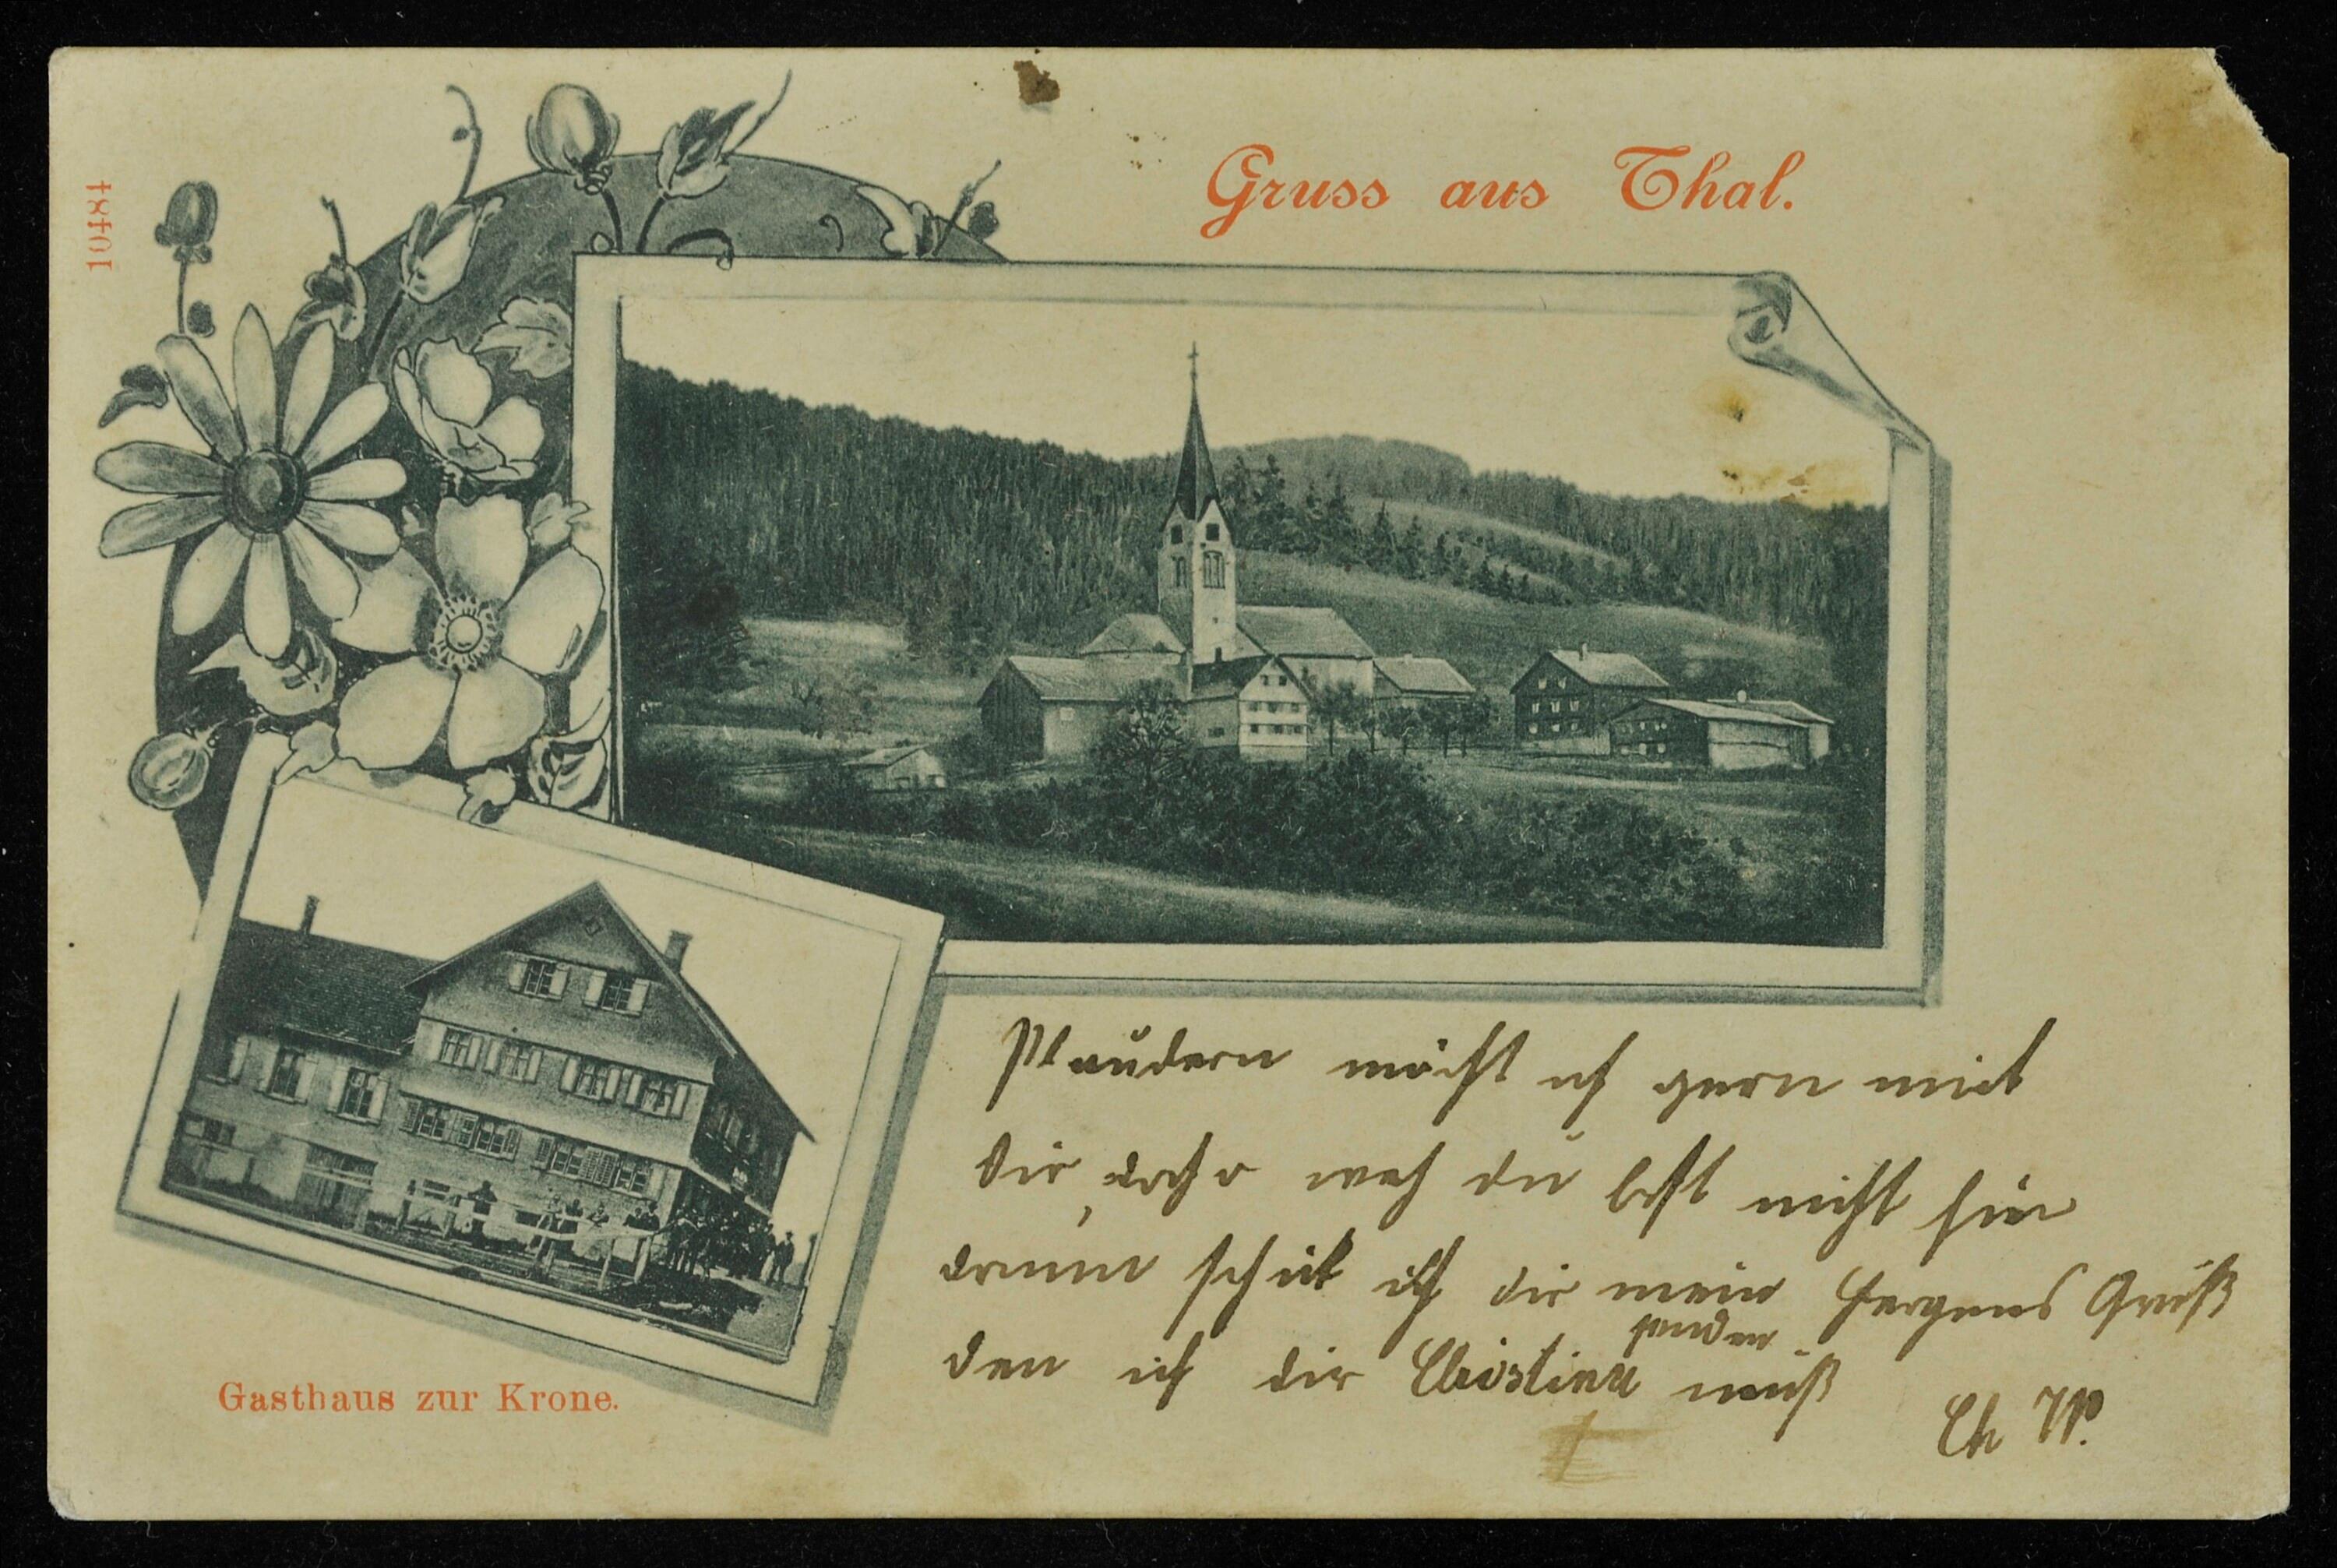 10484
Gruss aus Thal.
Plaudern möcht ich gern mit
dir, doch weh du bist nicht hier
drum schik ich dir mein Herzens Gruß
senden
den ich dir Christina muß
Ch W.
Gasthaus zur Krone.